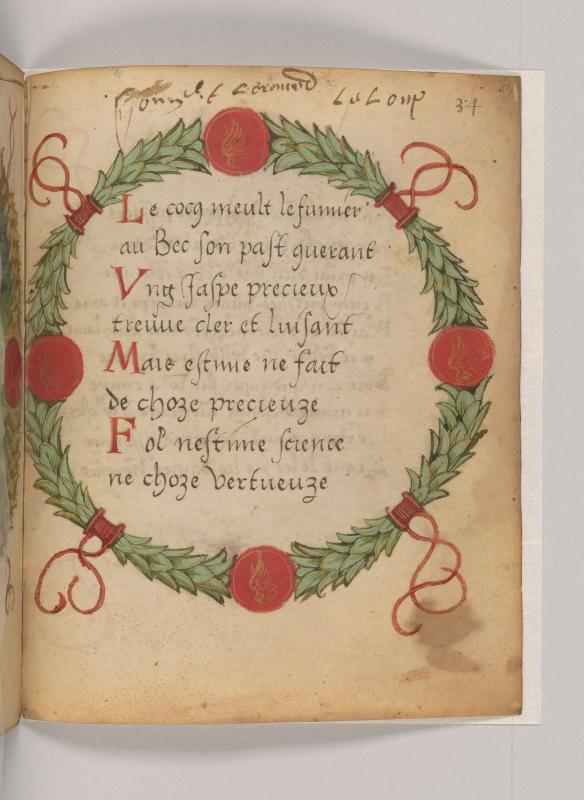 Le Loup
34
Le cocq meult le fumier
au Bec son past querant
Vng Jaspe precieux
treuue cler et luisant
Mais estime ne fait
de choze precieuze
Fol nestime science
ne choze vertueuze